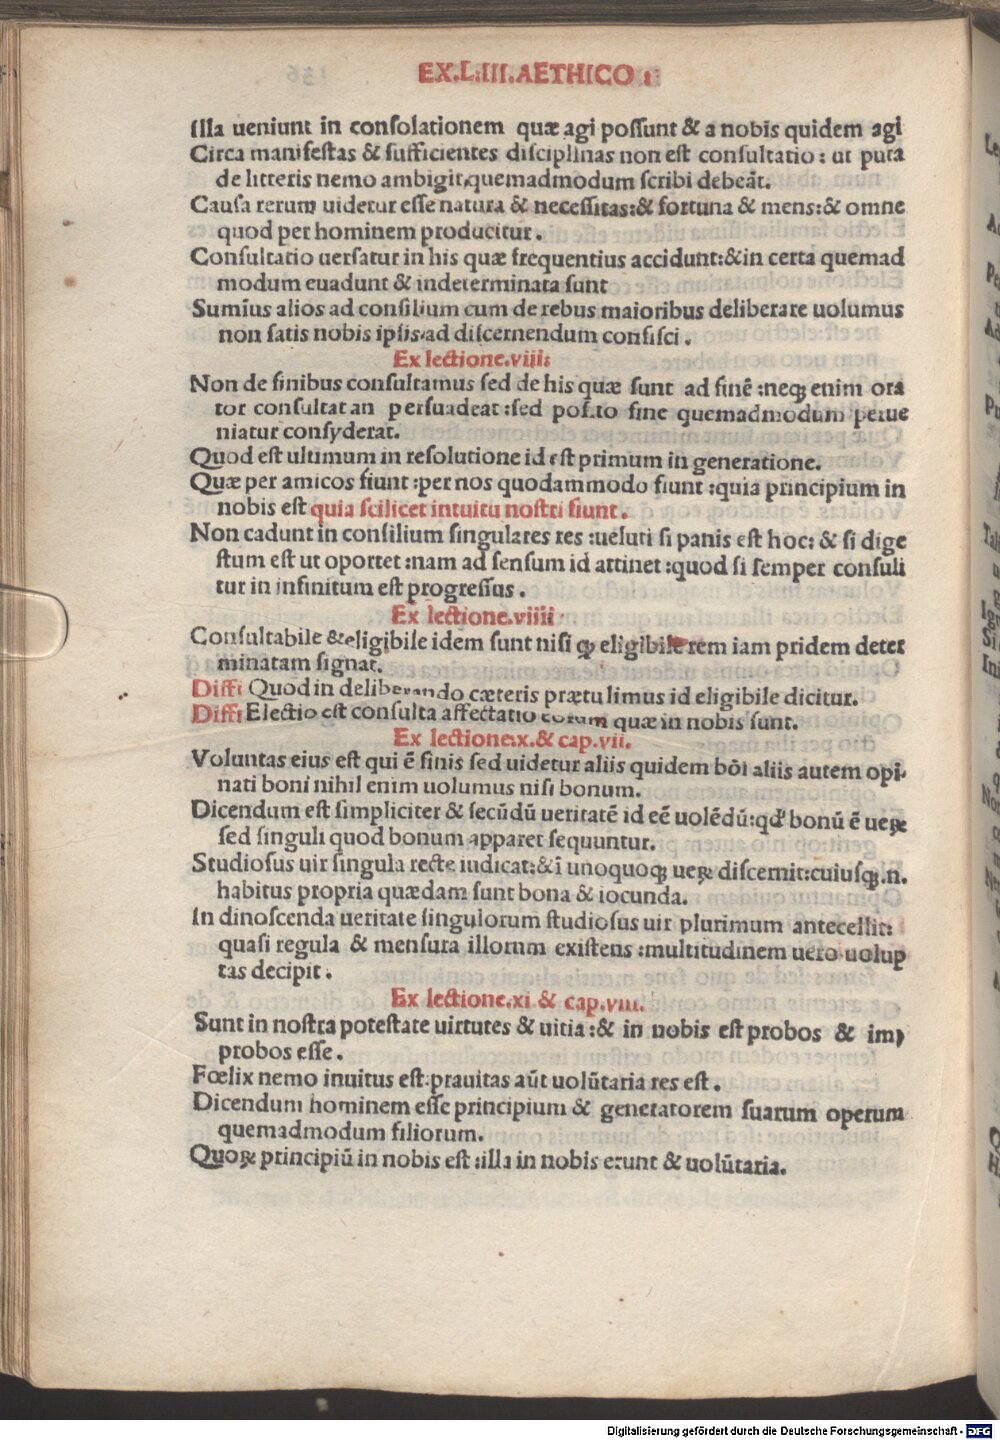 EX.L.III.AETHICO
Illa ueniunt in consolationem quæ agi possunt & a nobis quidem agi
Circa manifestas & sufficientes disciplinas non est consultatio: ut puta
de litteris nemo ambigit, quemadmodum scribi debeāt.
Causa rerum uidetur esse natura & necessitas:& fortuna & mens:& omne
quod per hominem producitur.
Consultatio uersatur in his quæ frequentius accidunt:& in certa quemad
modum euadunt & indeterminata sunt
Sumīus alios ad consilium cum de rebus maioribus deliberare uolumus
non satis nobis ipsis ad discernendum confisi.
Ex lectione.viii:
Non de finibus consultamus sed de his quæ sunt ad finē :neqꝫ enim ora
tor consultat an persuadeat :sed posito fine quemadmodum perue
niatur consyderat.
Quod est ultimum in resolutione id est primum in generatione.
Quæ per amicos fiunt :per nos quodammodo fiunt :quia principium in
nobis est quia scilicet intuitu nostri fiunt.
Non cadunt in consilium singulares res :ueluti si panis est hoc: & si dige
stum est ut oportet :nam ad sensum id attinet :quod si semper consuli
tur in infinitum est progressus.
Ex lectione.viiii
Consultabile & eligibile idem sunt nisi ꝙ eligibile rem iam pridem deter
minatam signat.
Diffi Quod in deliberando cæteris prætulimus id eligibile dicitur.
Diffi Electio est consulta affectatio eorum quæ in nobis sunt.
Ex lectione.x.& cap.vii.
Voluntas eius est qui ē finis sed uidetur aliis quidem bōi aliis autem opi-
nati boni nihil enim uolumus nisi bonum.
Dicendum est simpliciter & secūdū ueritatē id eē uolēdū:qd' bonū ē ueꝝ
sed singuli quod bonum apparet sequuntur.
Studiosus uir singula recte iudicat:& ī unoquoqꝫ ueꝝ discernit:cuiusqꝫ.n.
habitus propria quædam sunt bona & iocunda.
In dinoscenda ueritate singulorum studiosus uir plurimum antecellit:
quasi regula & mensura illorum existens :multitudinem uero uolup
tas decipit.
Ex lectione.xi & cap.viii.
Sunt in nostra potestate uirtutes & uitia :& in nobis est probos & im,
probos esse.
Fœlix nemo inuitus est.prauitas aūt uolūtaria res est.
Dicendum hominem esse principium & generatorem suarum operum
quemadmodum filiorum.
Quoꝝ principiū in nobis est :illa in nobis erunt & uolūtaria.
Digitalisierung gefördert durch die Deutsche Forschungsgemeinschaft - DFG